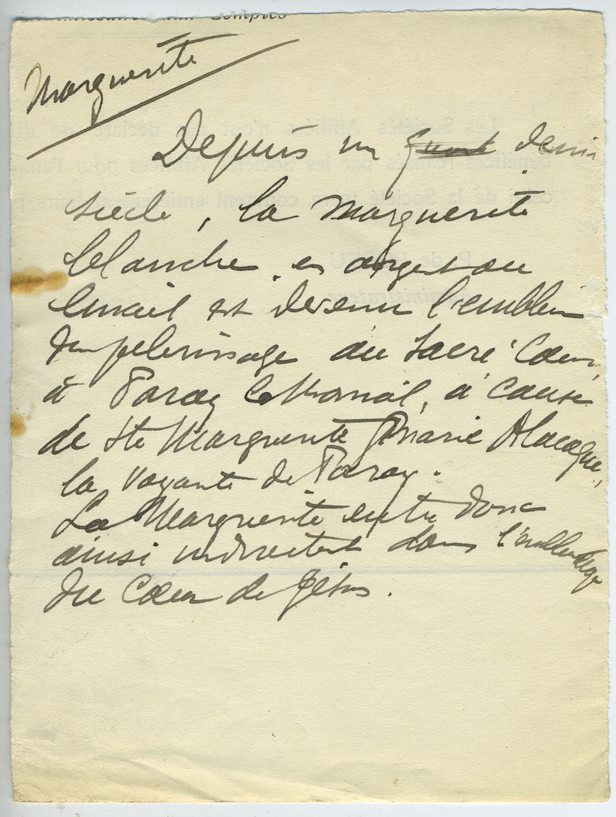 Comptes
Marguerite
Depuis un demi
siècle, la marguerite
blanche, en argent ou
émail est devenu l'emblème
du pelerinage du Sacré Coeur
à Paray le Monial, à cause
de Ste Marguerite Marie Alacoque,
la voyante de Paray.
La Marguerite entre donc
ainsi indirectent dans
du Coeur de Jésus.